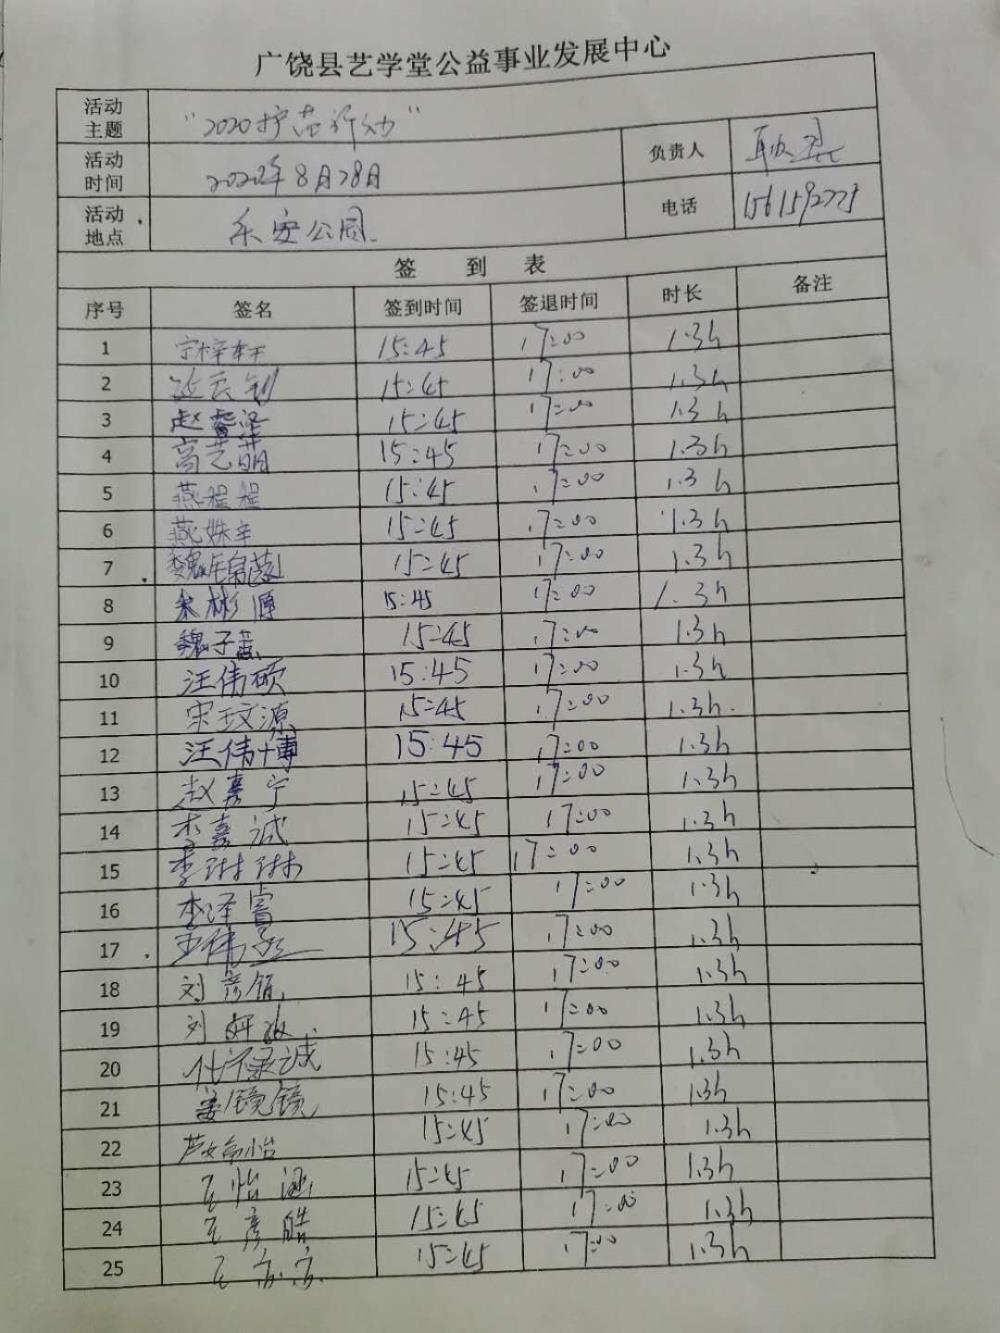 广饶县艺学堂公益事业发展中心
活动主题 "2020护苗行动"
活动时间 2020年8月28日 负责人
活动地点 乐安公园. 电话
签到表
序号 签名 签到时间 签退时间 时长 备注
1 宁梓轩 15:45 17:00 1.3h
2 15:45 17:00 1.3h
3 赵 15:45 17:00 1.3h
4 高艺菲 15:45 17:00 1.3h
5 燕程程 15:45 17:00 1.3h
6 燕姝辛 15:45 17:00 1.3h
7 魏 15:45 17:00 1.3h
8 宋彬源 15:45 17:00 1.3h
9 魏子 15:45 17:00 1.3h
10 汪伟硕 15:45 17:00 1.3h
11 宋玟源 15:45 17:00 1.3h.
12 汪伟博 15:45 17:00 1.3h
13 赵嘉宁 15:45 17:00 1.3h
14 李嘉诚 15:45 17:00 1.3h
15 李琳琳 15:45 17:00 1.3h
16 李泽 15:45 17:00 1.3h
17 王伟 15:45 17:00 1.3h
18 刘彦 15:45 17:00 1.3h
19 刘 15:45 17:00 1.3h
20 诚 15:45 17:00 1.3h
21 镜镜 15:45 17:00 1.3h
22 怡 15:45 17:00 1.3h
23 王怡涵 15:45 17:00 1.3h
24 王彦皓 15:45 17:00 1.3h
25 王 15:45 17:00 1.3h